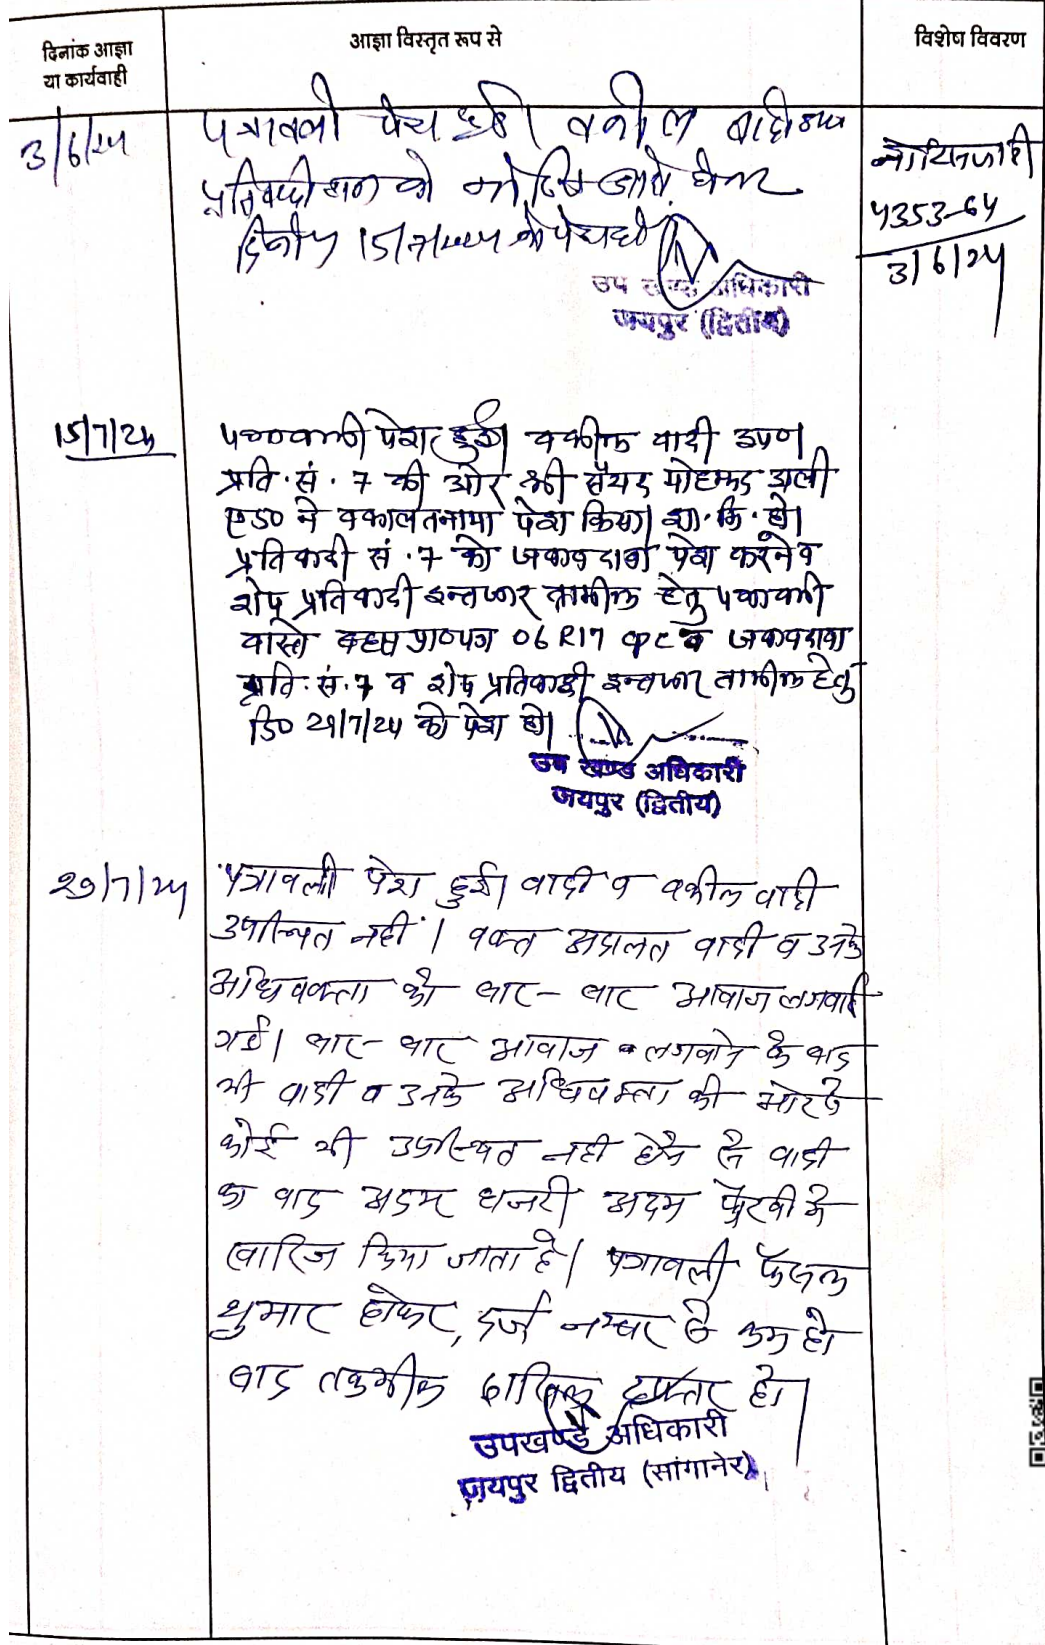 दिनांक आज्ञा
या कार्यवाही
आज्ञा विस्तृत रूप से
विशेष विवरण
3/6/24
पत्रावली पेश हुई। वकील वादी उप०
प्रतिवादीगण को नोटिस जारी होकर
दिनांक 15/7/2024 को पेश हो।
नोटिस जारी
4353-64
3/6/24
उप खण्ड अधिकारी
जयपुर (द्वितीय)
15/7/24
पत्रावली पेश हुई। वकील वादी उप०।
प्रति. सं. 7 की ओर श्री सैयद मोहम्मद अली
एड० ने वकालतनामा पेश किया। शा. मि. हो।
प्रतिवादी सं. 7 को जवाब दावा पेश करने व
शेष प्रतिवादी इन्तजार तामील हेतु पत्रावली
वास्ते बहस प्रा०पत्र 06 R17 CPC व जवाबदावा
प्रति. सं. 7 व शेष प्रतिवादी इन्तजार तामील हेतु
दि० 29/7/24 को पेश हो।
उप खण्ड अधिकारी
जयपुर (द्वितीय)
29/7/24
पत्रावली पेश हुई। वादी व वकील वादी
उपस्थित नहीं। वक्त अदालत वादी व उनके
अधिवक्ता को बार-बार आवाज लगवाई
गई। बार-बार आवाज लगवाने के बाद
भी वादी व उनके अधिवक्ता की ओर से
कोई भी उपस्थित नहीं होने से वादी
का वाद अदम हाजरी अदम पैरवी में
खारिज किया जाता है। पत्रावली फैसल
शुमार होकर, दर्ज नम्बर से कम हो
बाद तकमील दाखिल दफ्तर हो।
उपखण्ड अधिकारी
जयपुर द्वितीय (सांगानेर)